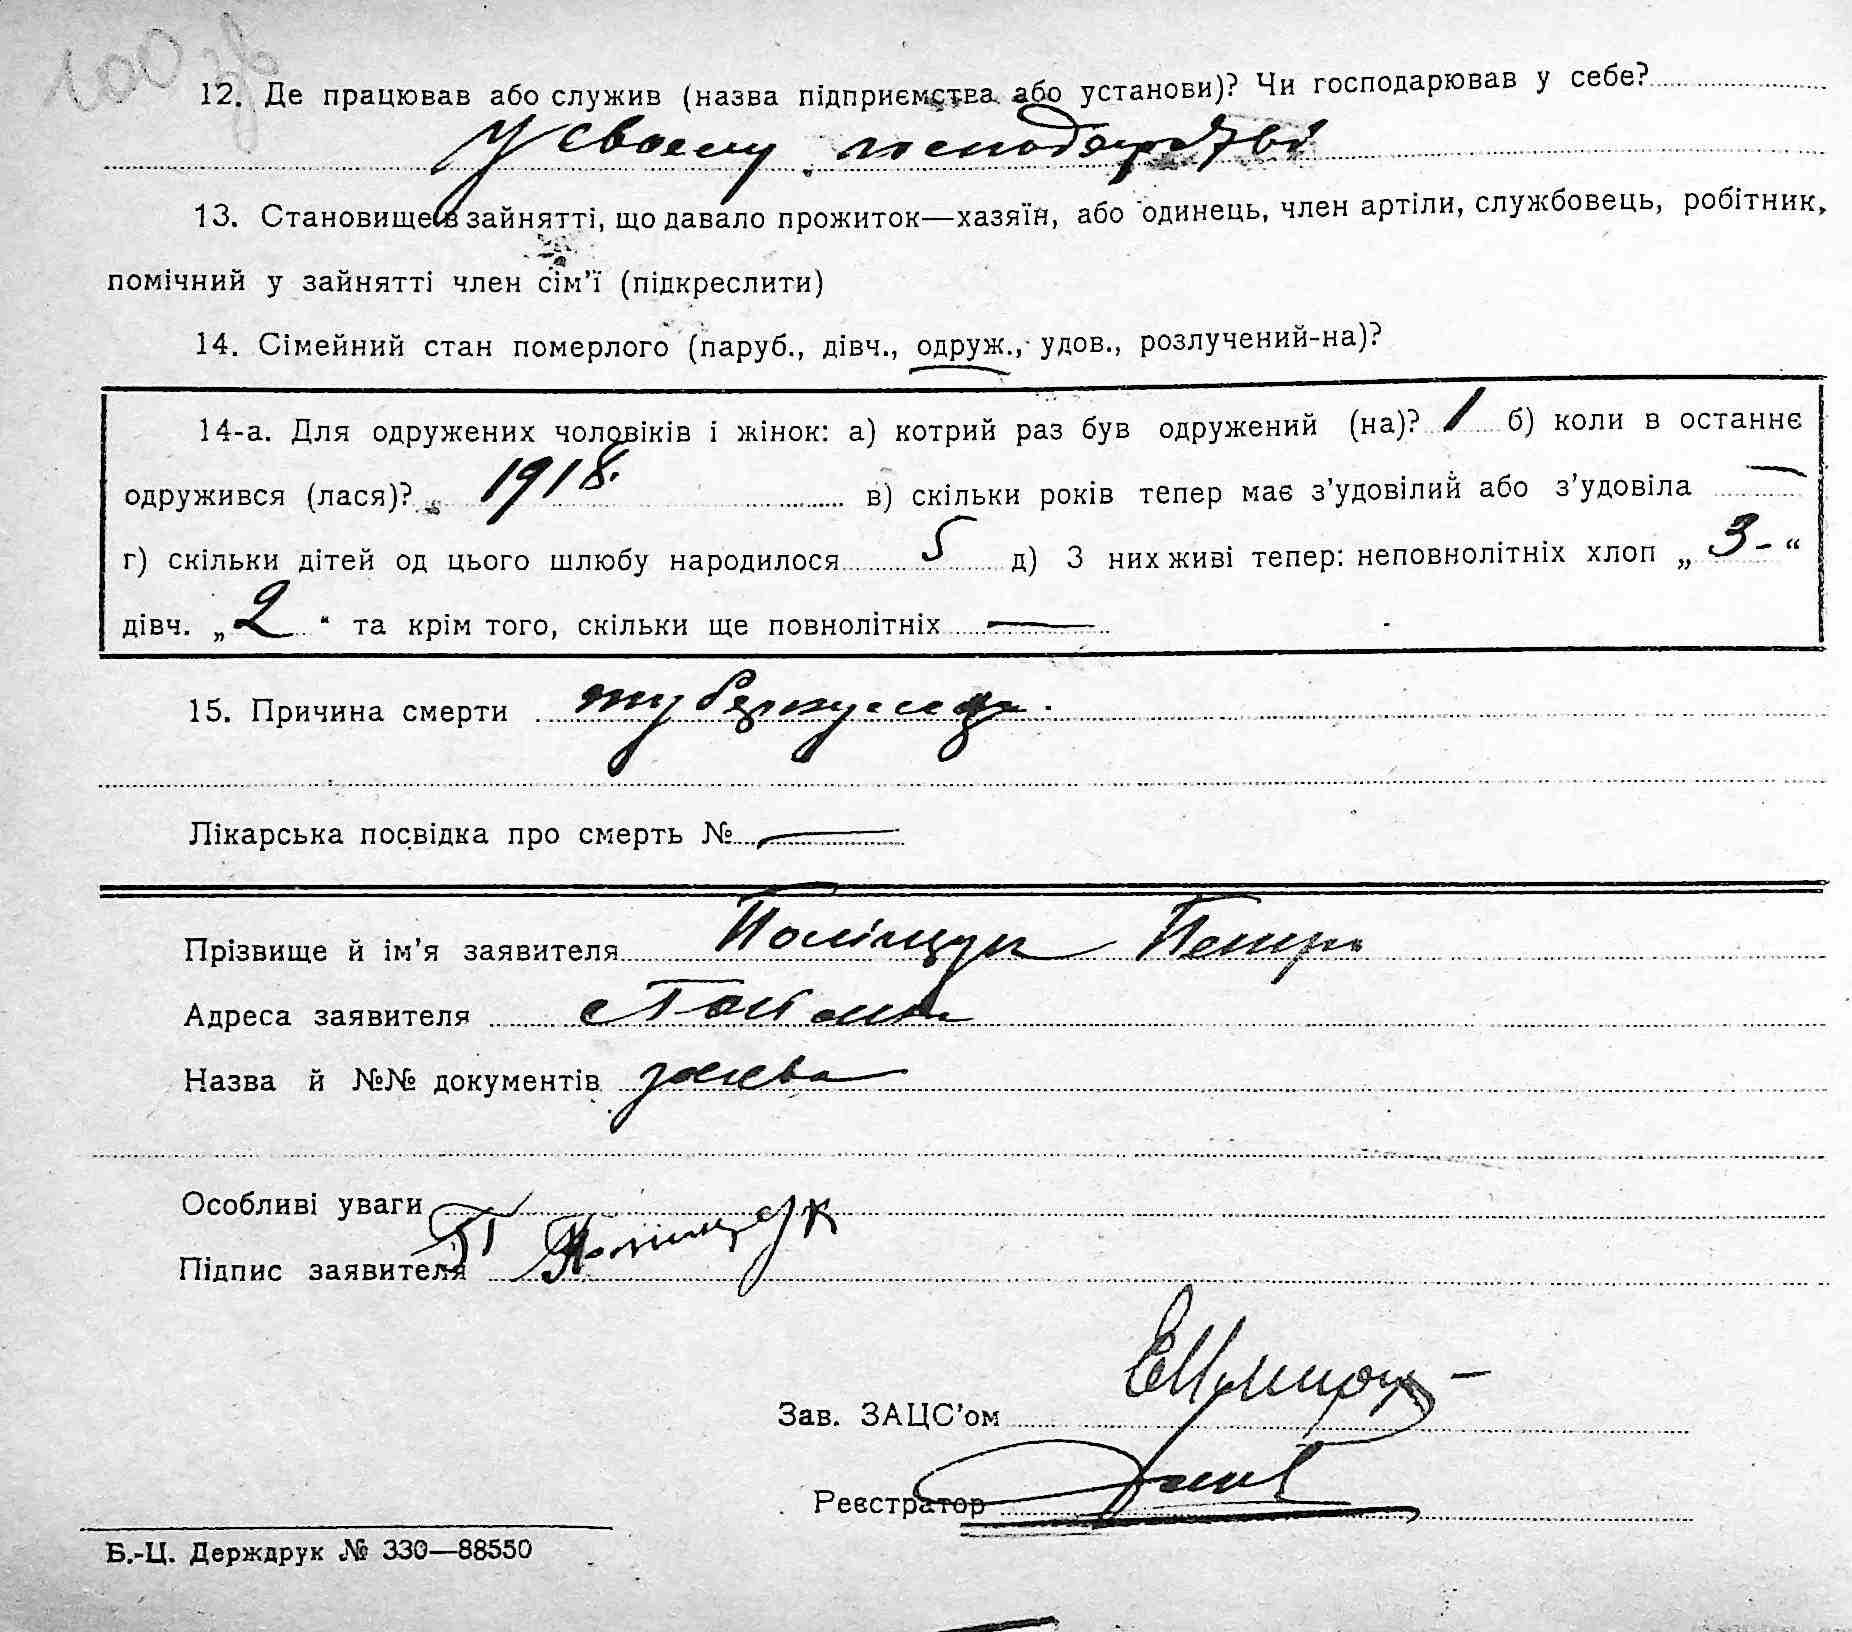 100 зв
12. Де працював або служив (назва підприємства або установи)? Чи господарював у себе?
У своєму господарстві
13. Становище в зайнятті, що давало прожиток—хазяїн, або одинець, член артіли, службовець, робітник,
помічний у зайнятті член сім'ї (підкреслити)
14. Сімейний стан померлого (паруб., дівч., одруж., удов., розлучений-на)?
14-а. Для одружених чоловіків і жінок: а) котрий раз був одружений (на)? 1 б) коли в останнє
одружився (лася)? 1918. в) скільки років тепер має з'удовілий або з'удовіла —
г) скільки дітей од цього шлюбу народилося 5 д) З них живі тепер: неповнолітніх хлоп „ 3 - “
дівч. „ 2 “ та крім того, скільки ще повнолітніх —
15. Причина смерти туберкульоз.
Лікарська посвідка про смерть № —
Прізвище й ім'я заявителя Поліщук Петро
Адреса заявителя
Назва й №№ документів заява
Особливі уваги
Підпис заявителя П Поліщук
Зав. ЗАЦС'ом
Реєстратор
Б.-Ц. Держдрук № 330—88550